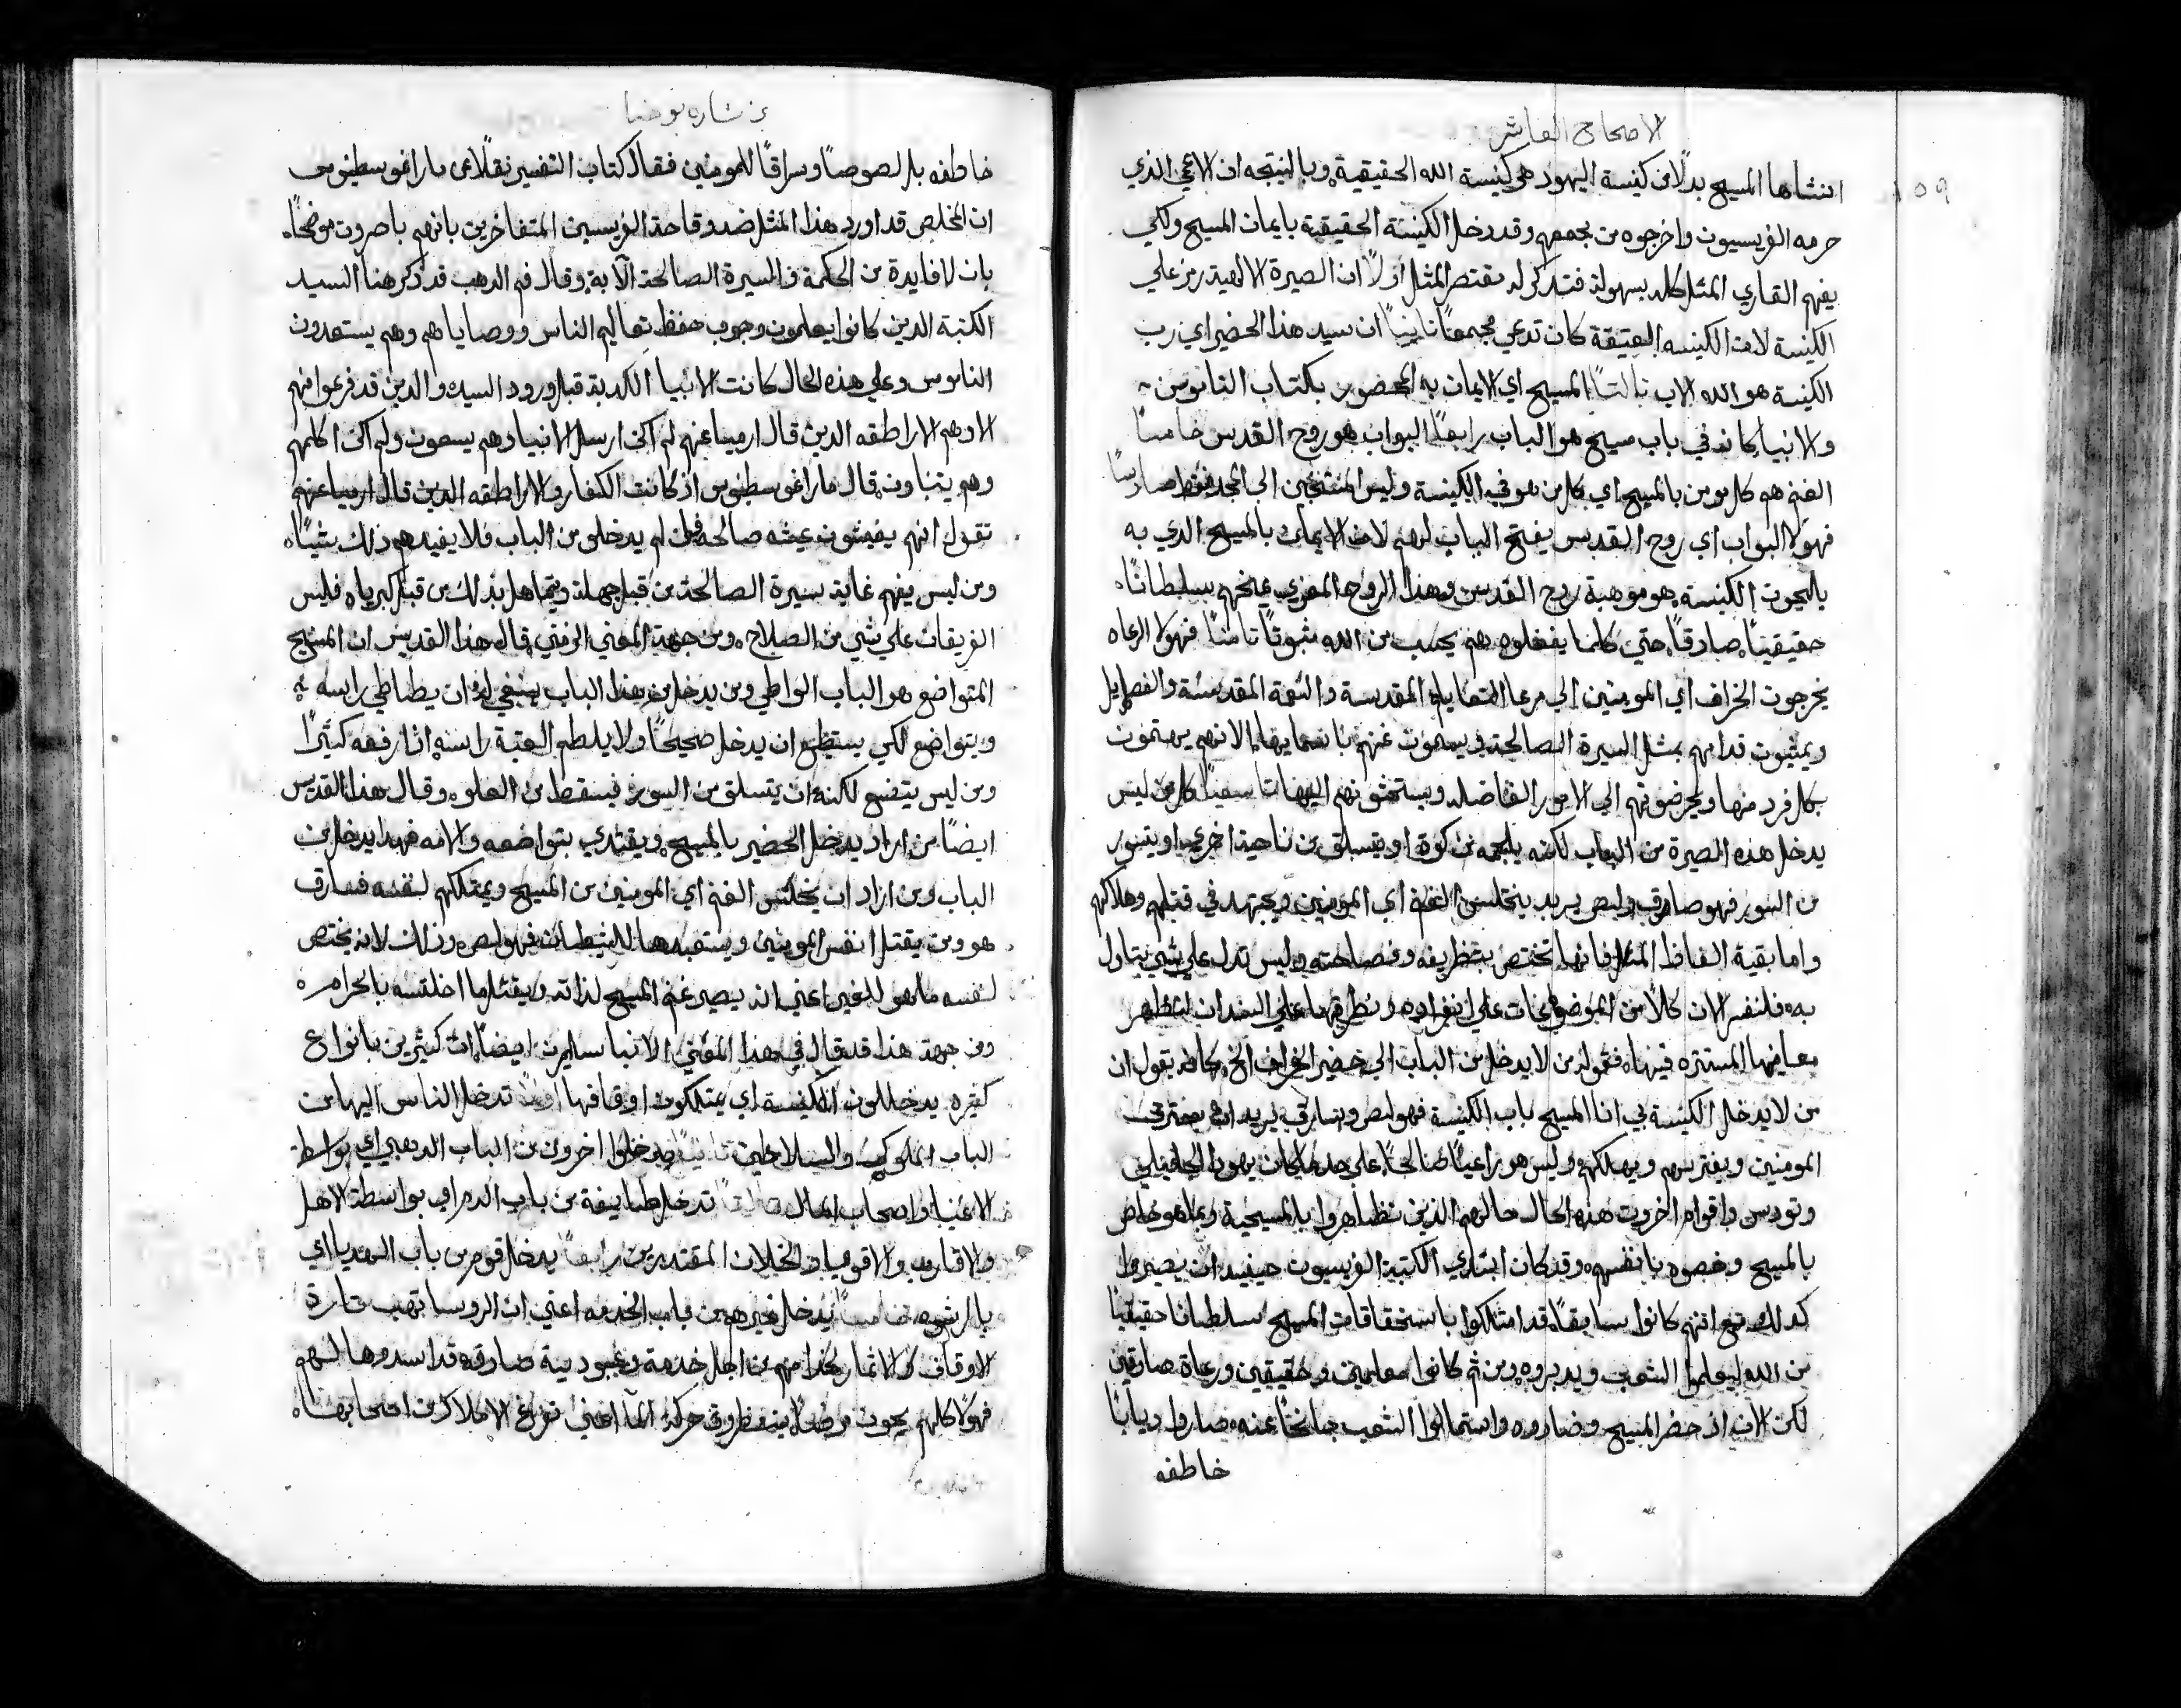 الاصحاح العاشر
١٥٩
انشاها المسيح بدلًا من كنيسة اليهود هي كنيسة الله الحقيقية وبالنتيجه ان الاعمي الذي
حرمه الفريسيون واخرجوه من مجمعهم وقد دخل الكنيسة الحقيقية بايمان المسيح ولكي
يفهم القاري المثل كله بسهولة فتذكر له مقتصر المثل اولًا ان الصيرة الالهية رمز علي
الكنيسة لان الكنيسه العتيقة كان تدعي مجمعًا ثانيًا ان سيد هذا الحضير اي رب
الكنيسة هو الله الاب ثالثًا المسيح اي الايمان به المحضور بكتاب الناموس
والانبيا كانه في باب مسيح هو الباب رابعًا البواب هو روح القدس خامسًا
الغنم هم كل مومن بالمسيح اي كل من هو في الكنيسة وليس المنتخبين الي المجد فقط سادسًا
فهولا البواب اي روح القدس يفتح الباب لهم لان الايمان بالمسيح الدي به
يلجون الكنيسه هو موهبة روح القدس وهذا الروح المعزي يمنحهم سلطانًا
حقيقيًا صادقًا حتي كلما يفعلوه هم يحسب من الله مثبوتًا ثامنًا فهولا الرعاه
يخرجون الخراف اي المومنين الي مرعا التعاليم المقدسة والنعمة المقدسة والفضايل
ويمشون قدامهم بمثل السيرة الصالحة ويسمون غنمهم باسمايها لانهم يهتمون
بكل فرد منها ويحرضونهم الي الامور الفاضله ويستحثونهم اليها تاسعًا كل من ليس
يدخل هذه الصيرة من الباب لكنه يلجه من كوة او يتسلق من ناحية اخري او يتسور
من السور فهو سارق ولص يريد يختلس الغنم اي المومنين ويجتهد في قتلهم وهلاكهم
واما بقية الفاظ المثل فانها تختص بتظريفه وفصاحته وليس تدل علي شي يتاول
به فلنفسر الان كلًا من الموضوعات علي انفراده ونظرقها علي السندان لتظهر
معانيها المستتره فيها فقوله من لا يدخل من الباب الي حضير الخراف الخ كانه يقول ان
من لا يدخل الكنيسة بي انا المسيح باب الكنيسة فهو لص وسارق يريد ان يسترق
المومنين ويفترسهم ويهلكهم وليس هو راعيًا صالحًا علي حد ما كان يهودا الجليلي
وتودس واقوام اخرون هذه الحال حالهم الذين تظاهروا بالمسيحية وبما هو خاص
بالمسيح وخصوه بانفسهم وقد كان ابتدي الكتبة الفريسيون حينيد ان يصيروا
كدلك مع انهم كانوا سابقًا قد امتلكوا باستحقاقات المسيح سلطانا حقيقيًا
من الله ليعلموا الشعب ويدبروه ومن ثم كانوا معلمين وحقيقيين ورعاة صادقين
لكن الان اذ حضر المسيح وضادوه واستمالوا الشعب جانحًا عنه صاروا ديابًا
خاطفه
بشاره يوحنا
خاطفه بل لصوصًا وسراقًا للمومنين فقال كتاب التفسير نقلًا عن ماراغوسطينوس
ان المخلص قد اورد هذا المثل ضد وقاحة الفريسيين المتفاخرين بانهم باصرون موضحًا
بان لا فايدة من الحكمة والسيرة الصالحة الا به وقال فم الدهب قد ذكر هنا السيد
الكتبة الدين كانوا يعلمون وجوب حفظ تعاليم الناس ووصاياهم وهم يستعدون
الناموس وعلي هذه الحال كانت الانبيا الكدبة قبل ورود السيد والدين قد فرعوا منهم
الا وهم الاراطقه الدين قال ارميا عنهم لم اكن ارسل الانبيا وهم يسعون ولم اكن اكلمهم
وهم يتنباون قال ماراغوسطينوس اذ كانت الكفار والاراطقه الدين قال ارميا عنهم
تقول انهم يعيشون عيشه صالحه فان لم يدخلوا من الباب فلا يفيدهم ذلك شيًا
ومن ليس يفهم غاية سيرة الصالحة من قبل جهله ويتجاهل بذلك من قبل كبرياه فليس
الفريقان علي شي من الصلاح ومن جهة المعني الرمزي قال هذا القديس ان المسيح
المتواضع هو الباب الواطي ومن يدخل من هذا الباب ينبغي له ان يطاطي راسه
ويتواضع لكي يستطيع ان يدخل صحيحًا ولا يلطم العتبة راسه اذا رفعه كثيرًا
ومن ليس يتضع لكنه ان يتسلق من السور فيسقط من العلو وقال هذا القديس
ايضًا من اراد يدخل الحضير بالمسيح ويقتدي بتواضعه والامه فهدا يدخل من
الباب ومن اراد ان يختلس الغنم اي المومنين من المسيح ويمتلكهم لنفسه فسارق
هو ومن يقتل انفس المومنين ويستعبدها للشيطان فهو لص وذلك لانه يختص
لنفسه ما هو للغير اعني انه يصير غنم المسيح لذاته ويقتل ما اختلسه بالحرام
ومن جهة هذا قد قال في هذا المعني الانبا سليرن ايضًا ان كثيرين بانواع
كثيره يدخلون الكنيسة اي يمتلكون اوقافها اولًا تدخل الناس اليها من
الباب الملوكي والسلاطين ثانيًا يدخلوا اخرون من الباب الدهبي اي بواسطة
الاغنيا واصحاب المال ثالثًا تدخل طايفة من باب الدم اي بواسطة الاهل
والاقارب والاقوميا والخلان المقتدرين رابعًا يدخل قوم من باب الهديا اي
بالرشوه خامسًا يدخل غيرهم من باب الخدمه اعني ان الروسا تهب تارة
الاوقاف والاثمار لخدامهم من اجل خدمة وعبودية صادقه قد اسدوها لهم
فهولا كلهم يحون مرضًا منتظرون حركة الما اعني نوزع الاملاك من اصحابها